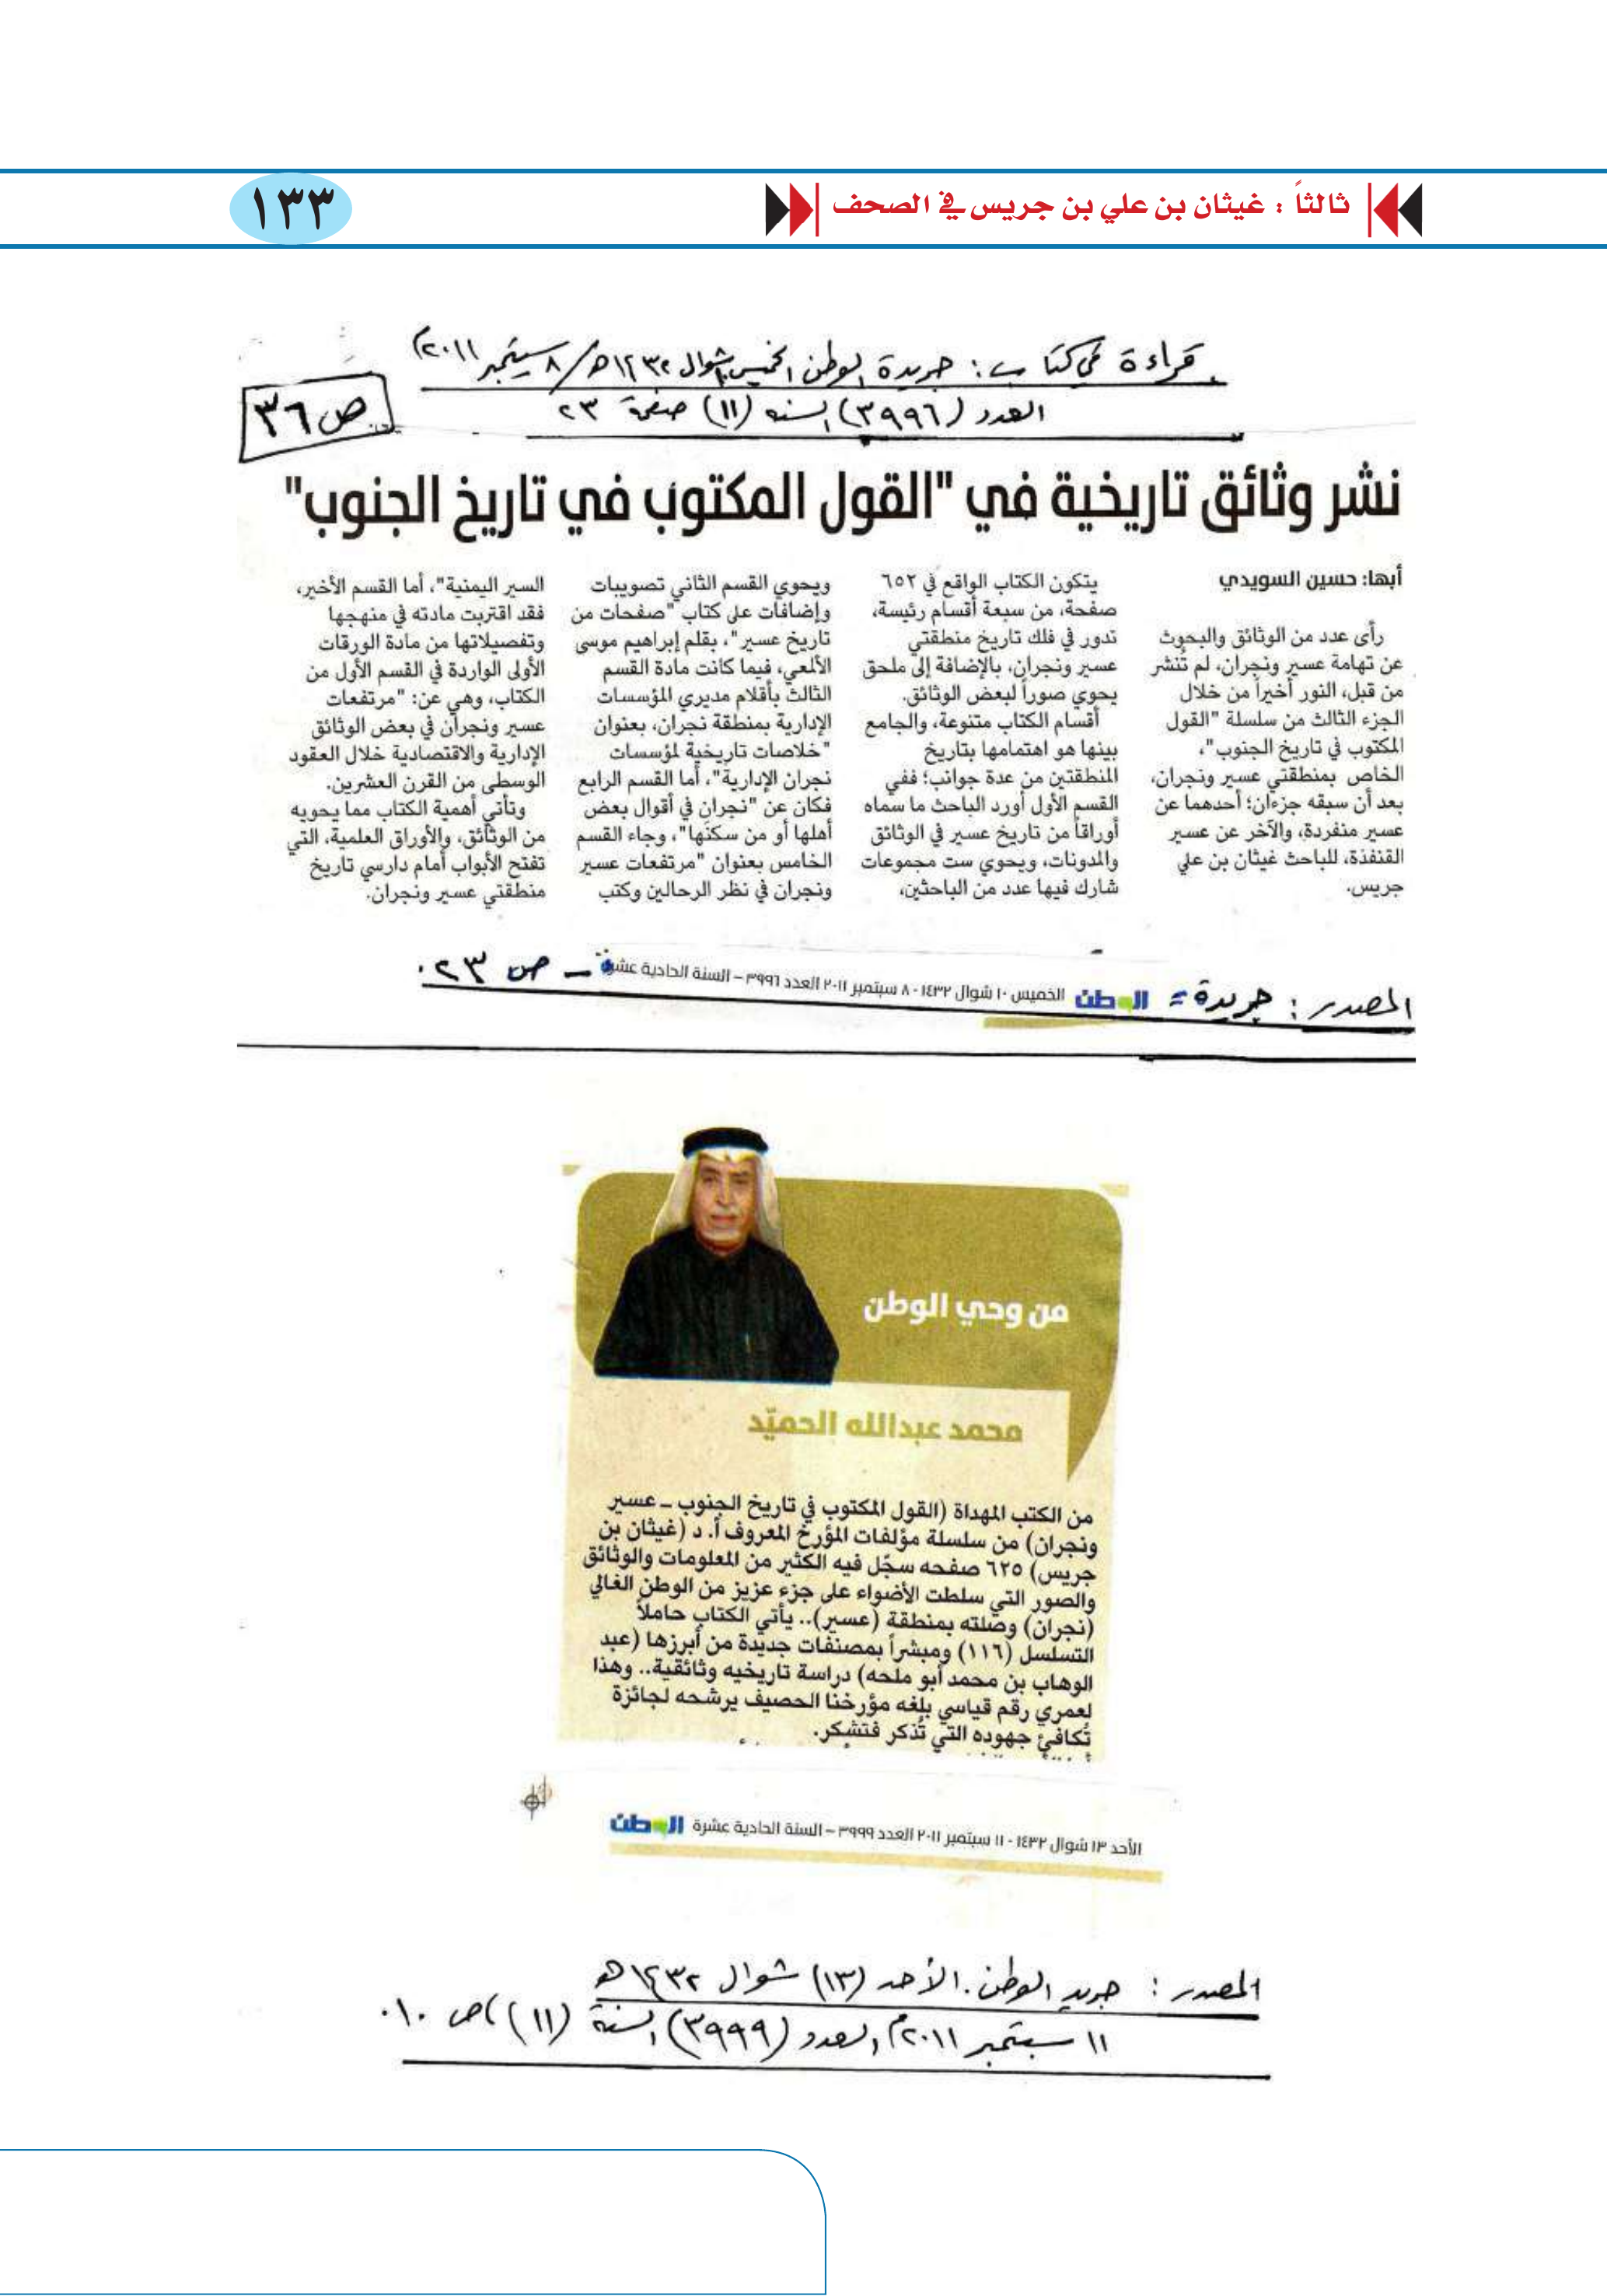 ثالثاً : غيثان بن علي بن جريس في الصحف
١٣٣
قراءة في كتاب : جريدة الوطن الخميس شوال ١٤٣٢هـ / ٨ سبتمبر ٢٠١١م
العدد (٣٩٩٦) السنه (١١) صفحة ٢٣
ص ٣٦
نشر وثائق تاريخية في "القول المكتوب في تاريخ الجنوب"
أبها: حسين السويدي
رأى عدد من الوثائق والبحوث
عن تهامة عسير ونجران، لم تُنشر
من قبل، النور أخيراً من خلال
الجزء الثالث من سلسلة "القول
المكتوب في تاريخ الجنوب"،
الخاص بمنطقتي عسير ونجران،
بعد أن سبقه جزءان؛ أحدهما عن
عسير منفردة، والآخر عن عسير
القنفذة، للباحث غيثان بن علي
جريس.
يتكون الكتاب الواقع في ٦٥٢
صفحة، من سبعة أقسام رئيسة،
تدور في فلك تاريخ منطقتي
عسير ونجران، بالإضافة إلى ملحق
يحوي صوراً لبعض الوثائق.
أقسام الكتاب متنوعة، والجامع
بينها هو اهتمامها بتاريخ
المنطقتين من عدة جوانب؛ ففي
القسم الأول أورد الباحث ما سماه
أوراقاً من تاريخ عسير في الوثائق
والمدونات، ويحوي ست مجموعات
شارك فيها عدد من الباحثين،
ويحوي القسم الثاني تصويبات
وإضافات على كتاب "صفحات من
تاريخ عسير"، بقلم إبراهيم موسى
الألعي، فيما كانت مادة القسم
الثالث بأقلام مديري المؤسسات
الإدارية بمنطقة نجران، بعنوان
"خلاصات تاريخية لمؤسسات
نجران الإدارية"، أما القسم الرابع
فكان عن "نجران في أقوال بعض
أهلها أو من سكنَها"، وجاء القسم
الخامس بعنوان "مرتفعات عسير
ونجران في نظر الرحالين وكتب
السير اليمنية"، أما القسم الأخير،
فقد اقتربت مادته في منهجها
وتفصيلاتها من مادة الورقات
الأولى الواردة في القسم الأول من
الكتاب، وهي عن: "مرتفعات
عسير ونجران في بعض الوثائق
الإدارية والاقتصادية خلال العقود
الوسطى من القرن العشرين.
وتأتي أهمية الكتاب مما يحويه
من الوثائق، والأوراق العلمية، التي
تفتح الأبواب أمام دارسي تاريخ
منطقتي عسير ونجران.
المصدر : جريدة = الوطن الخميس ١٠ شوال ١٤٣٢ - ٨ سبتمبر ٢٠١١ العدد ٣٩٩٦ – السنة الحادية عشرة – ص ٢٣.
من وحي الوطن
محمد عبدالله الحميّد
من الكتب المهداة (القول المكتوب في تاريخ الجنوب ـ عسير
ونجران) من سلسلة مؤلفات المؤرخ المعروف أ. د (غيثان بن
جريس) ٦٢٥ صفحه سجّل فيه الكثير من المعلومات والوثائق
والصور التي سلطت الأضواء على جزء عزيز من الوطن الغالي
(نجران) وصلته بمنطقة (عسير).. يأتي الكتاب حاملاً
التسلسل (١١٦) ومبشراً بمصنفات جديدة من أبرزها (عبد
الوهاب بن محمد أبو ملحه) دراسة تاريخيه وثائقية.. وهذا
لعمري رقم قياسي بلغه مؤرخنا الحصيف يرشحه لجائزة
تُكافئ جهوده التي تُذكر فتشكر.
الأحد ١٣ شوال ١٤٣٢ - ١١ سبتمبر ٢٠١١ العدد ٣٩٩٩ – السنة الحادية عشرة الوطن
المصدر : جريد الوطن . الأحد (١٣) شوال ١٤٣٢هـ
١١ سبتمبر ٢٠١١م العدد (٣٩٩٩) السنة (١١) ) ص ١٠.